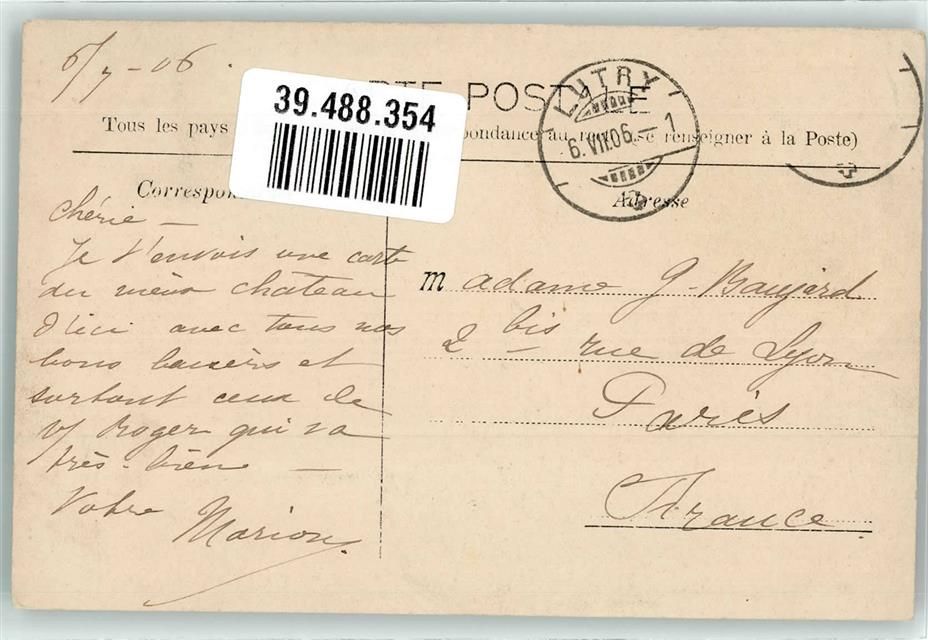 6/7-06.
39.488.354
RTE POSTALE
Tous les pays pondance au renseigner à la Poste)
LUTRY
6.VII.06.-1
Correspon
Adresse
Chérie -
Je t'envois une carte
du vieux chateau
d'ici avec tous nos
bons baisers et
surtout ceux de
Roger qui va
très-bien -
Votre
Marion
Madame G-Baujard
2 bis rue de Lyon
Paris
France